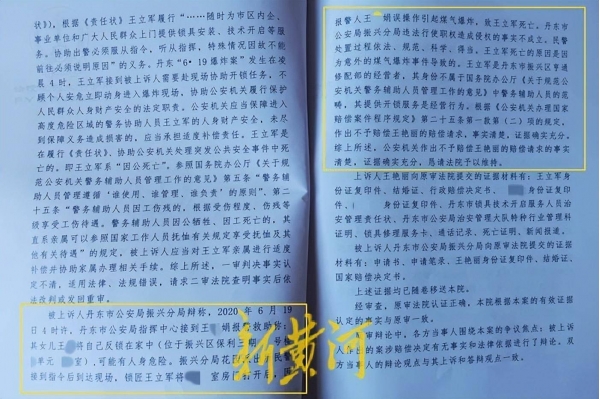 状》），根据《责任状》王立军履行“……随时为市区内企、
事业单位和广大人民群众上门提供锁具安装、技术开启等服
务。协助出警必须服从指令，听从指挥，特殊情况因故不能
前往必须说明原因”的义务。丹东“6·19爆炸案”发生在凌
晨4时，王立军接到被上诉人需要赴现场协助开锁任务，不
顾个人安危立即动身进入爆炸现场，协助公安机关履行保护
人民群众人身财产安全的法定职责。公安机关应当保障进入
高度危险区域的警务协助人员王立军的人身财产安全，未尽
到保障义务造成损害的，应当承担适度补偿责任。王立军是
在履行《责任状》、协助公安机关处理突发公共安全事件中死
亡的，即王立军系“因公死亡”。参照国务院办公厅《关于规
范公安机关警务辅助人员管理工作的意见》第五条“警务辅
助人员管理遵循‘谁使用、谁管理、谁负责’的原则”、第二
十五条“警务辅助人员因工伤残的，根据受伤程度、伤残等
级享受工伤待遇。警务辅助人员因公牺牲、因工死亡的，其
直系亲属可以参照国家工作人员抚恤有关规定享受抚恤及其
他有关待遇”的规定，被上诉人应当对王立军亲属进行适度
补偿并协助家属办理相关手续。综上所述，一审判决事实认
定不清，适用法律、法规错误，请求二审法院查明事实后依
法改判或发回重审。
被上诉人丹东市公安局振兴分局辩称，2020年6月19
日4时许，丹东市公安局指挥中心接到王 娟报警救助称：
其女儿王 将自己反锁在家中（位于振兴区 号
单元 室），可能有人身危险。振兴分局花园 民警
接到指令后到达现场，锁匠王立军将 室房 打开后，因
报警人王 娟误操作引起煤气爆炸，致王立军死亡。丹东市
公安局振兴分局违法行使职权造成侵权的事实不成立，民警
处置过程依法、规范、科学、得当，王立军死亡的原因是因
为意外的煤气爆炸事件导致的。王立军是丹东市振兴区亨通
修配部的经营者，其身份不属于国务院办公厅《关于规范公
安机关警务辅助人员管理工作的意见》中警务辅助人员的范
畴，其提供开锁服务是经营行为。根据《公安机关办理国家
赔偿案件程序规定》第二十五条第一款第（二）项的规定，
作出不予赔偿王艳丽的赔偿请求，事实清楚，证据确实充分。
综上所述，公安机关作出不予赔偿王艳丽的赔偿请求的事实
清楚，证据确实充分，恳请法院予以维持。
上诉人王艳丽向原审法院提交的证据材料有：王立军身
份证复印件、结婚证、行政赔偿决定书、 身份证复印件、
身份证复印件、丹东市锁具技术开启服务人员治
安管理责任状、丹东市公安局治安管理大队特种行业管理科
证明、锁具修理服务卡、通话记录、死亡证明、新闻报道。
被上诉人丹东市公安局振兴分局向原审法院提交的证据
材料有：申请书、申请笔录、王艳丽身份证复印件、结婚证、
国家赔偿决定书。
上述证据均已随卷移送本院。
经审查，原审法院认证正确，本院根据本案的有效证据
认定的事实与原审一致。
审辩论中，各方当事人围绕本案的争议焦点：被上诉
人作出的案涉赔偿决定有无事实和法律依据进行了辩论。双
方当事人的辩论观点与其上诉和答辩观点一致。
新黄河